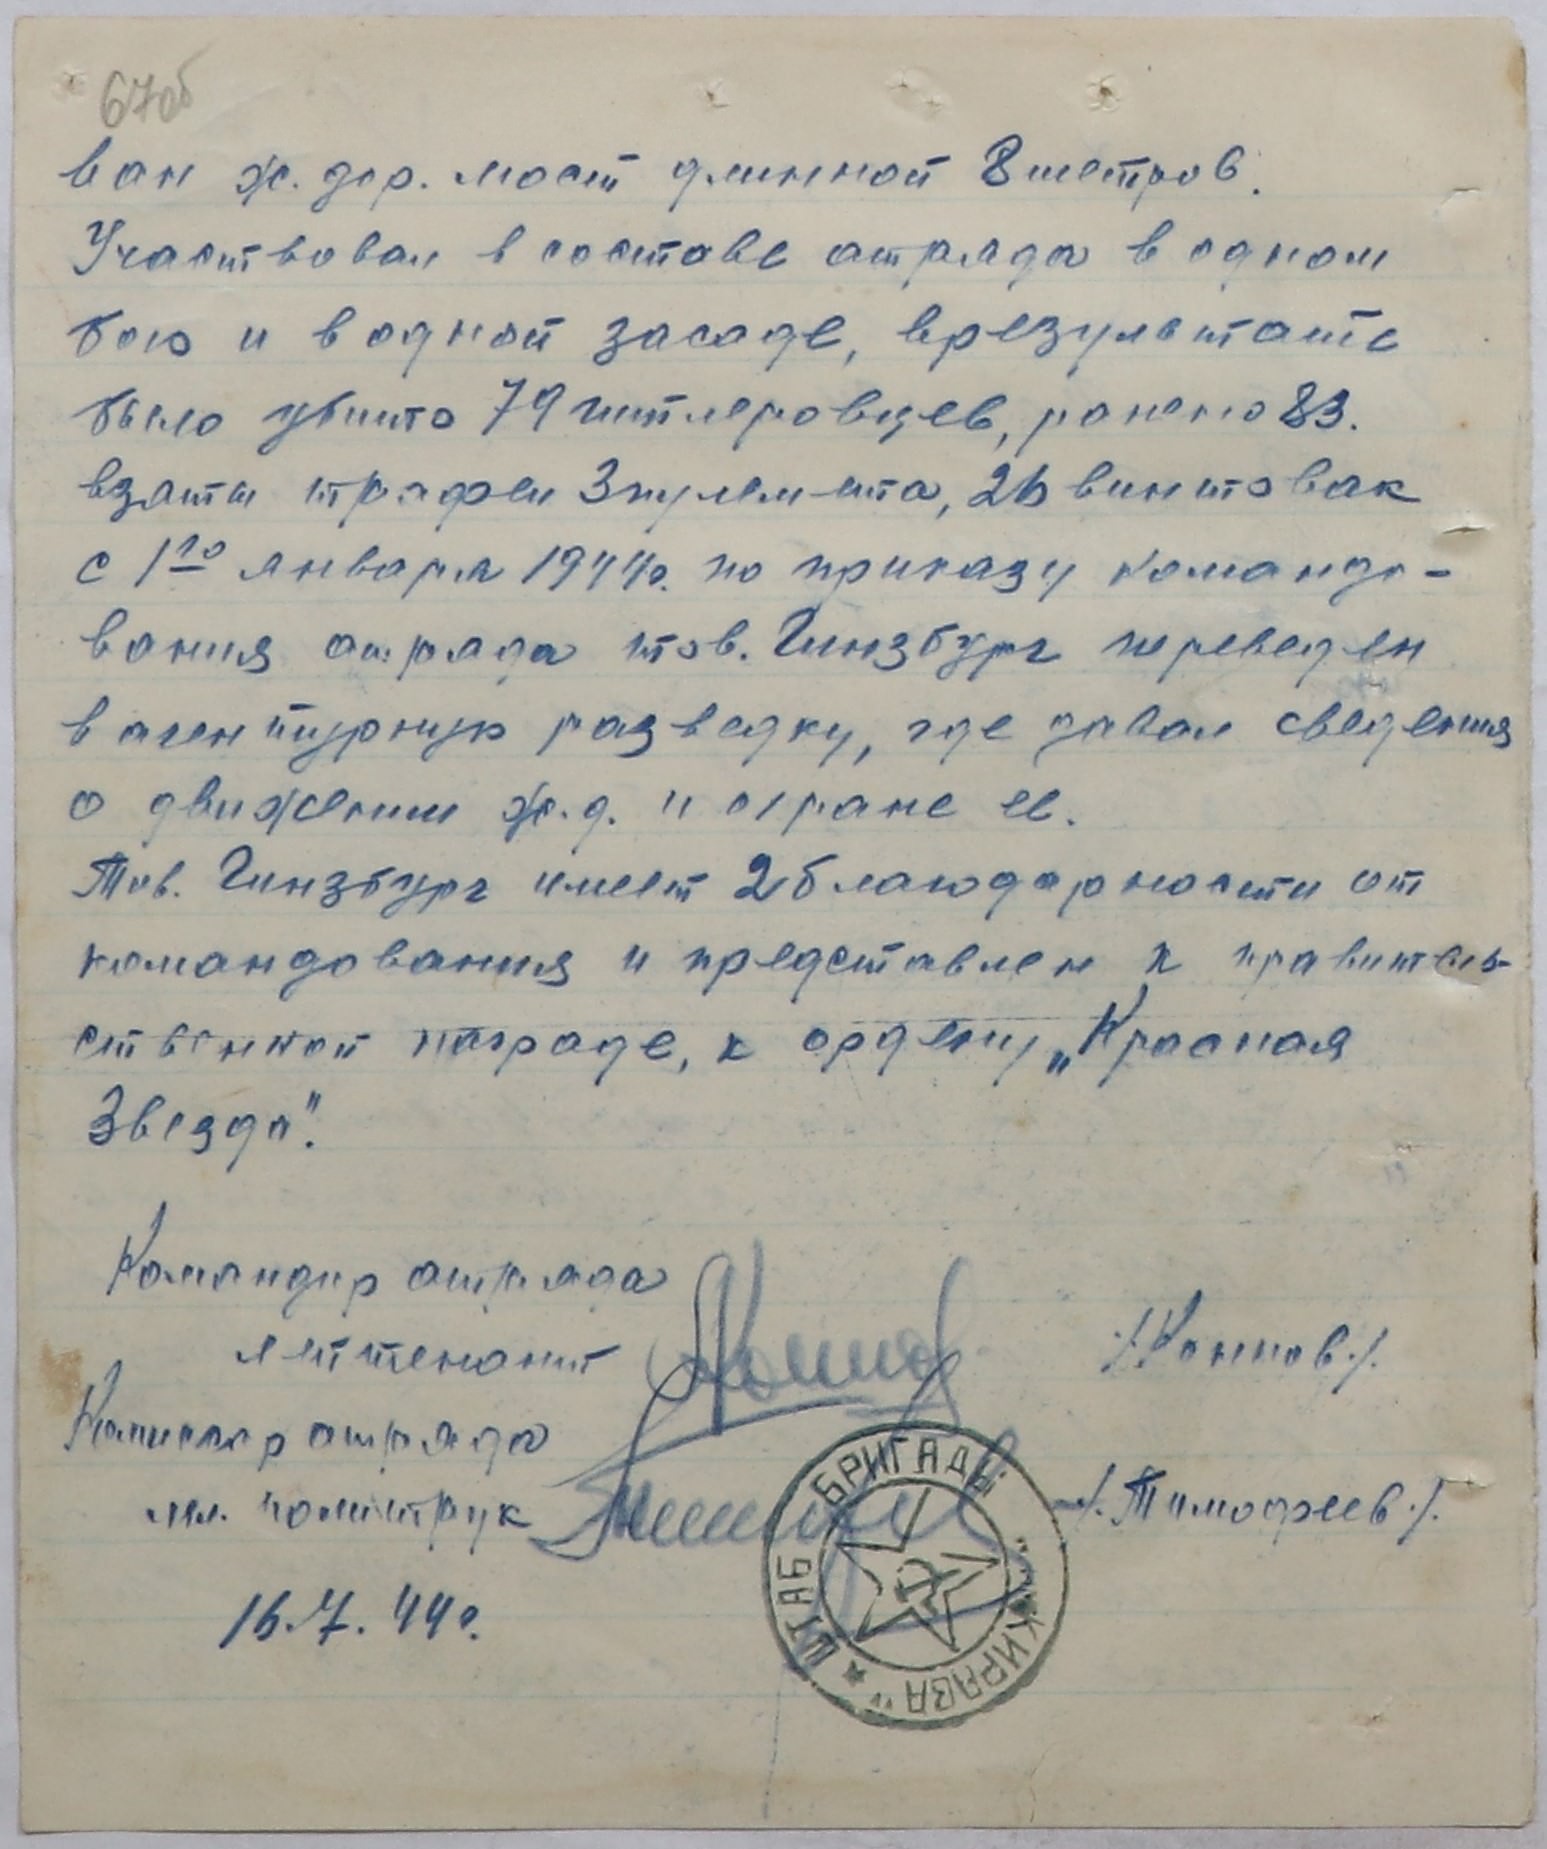 67об
ван ж.дор. мост длинной 8 метров.
Участвовал в составе отряда в одном
бою и в одной засаде, врезультате
было убито 79 гитлеровцев, ранено 83.
взяты трофеи 3 пулемета, 26 винтовак
с 1го января 1944г. по приказу командо-
вания отряда тов. Гинзбург переведен
в агентурную разведку, где давал сведения
о движении ж.д. и охране ее.
Тов. Гинзбург имеет 2 благодарности от
командования и представлен к правитель-
ственной награде, к ордену „Красная
Звезда".
Командир отряда
лейтенант /.Коннов./.
Комиссар отряда
мл. политрук /.Тимофеев./.
16.7.44г.
ШТАБ БРИГАДЫ "КИРАВА"